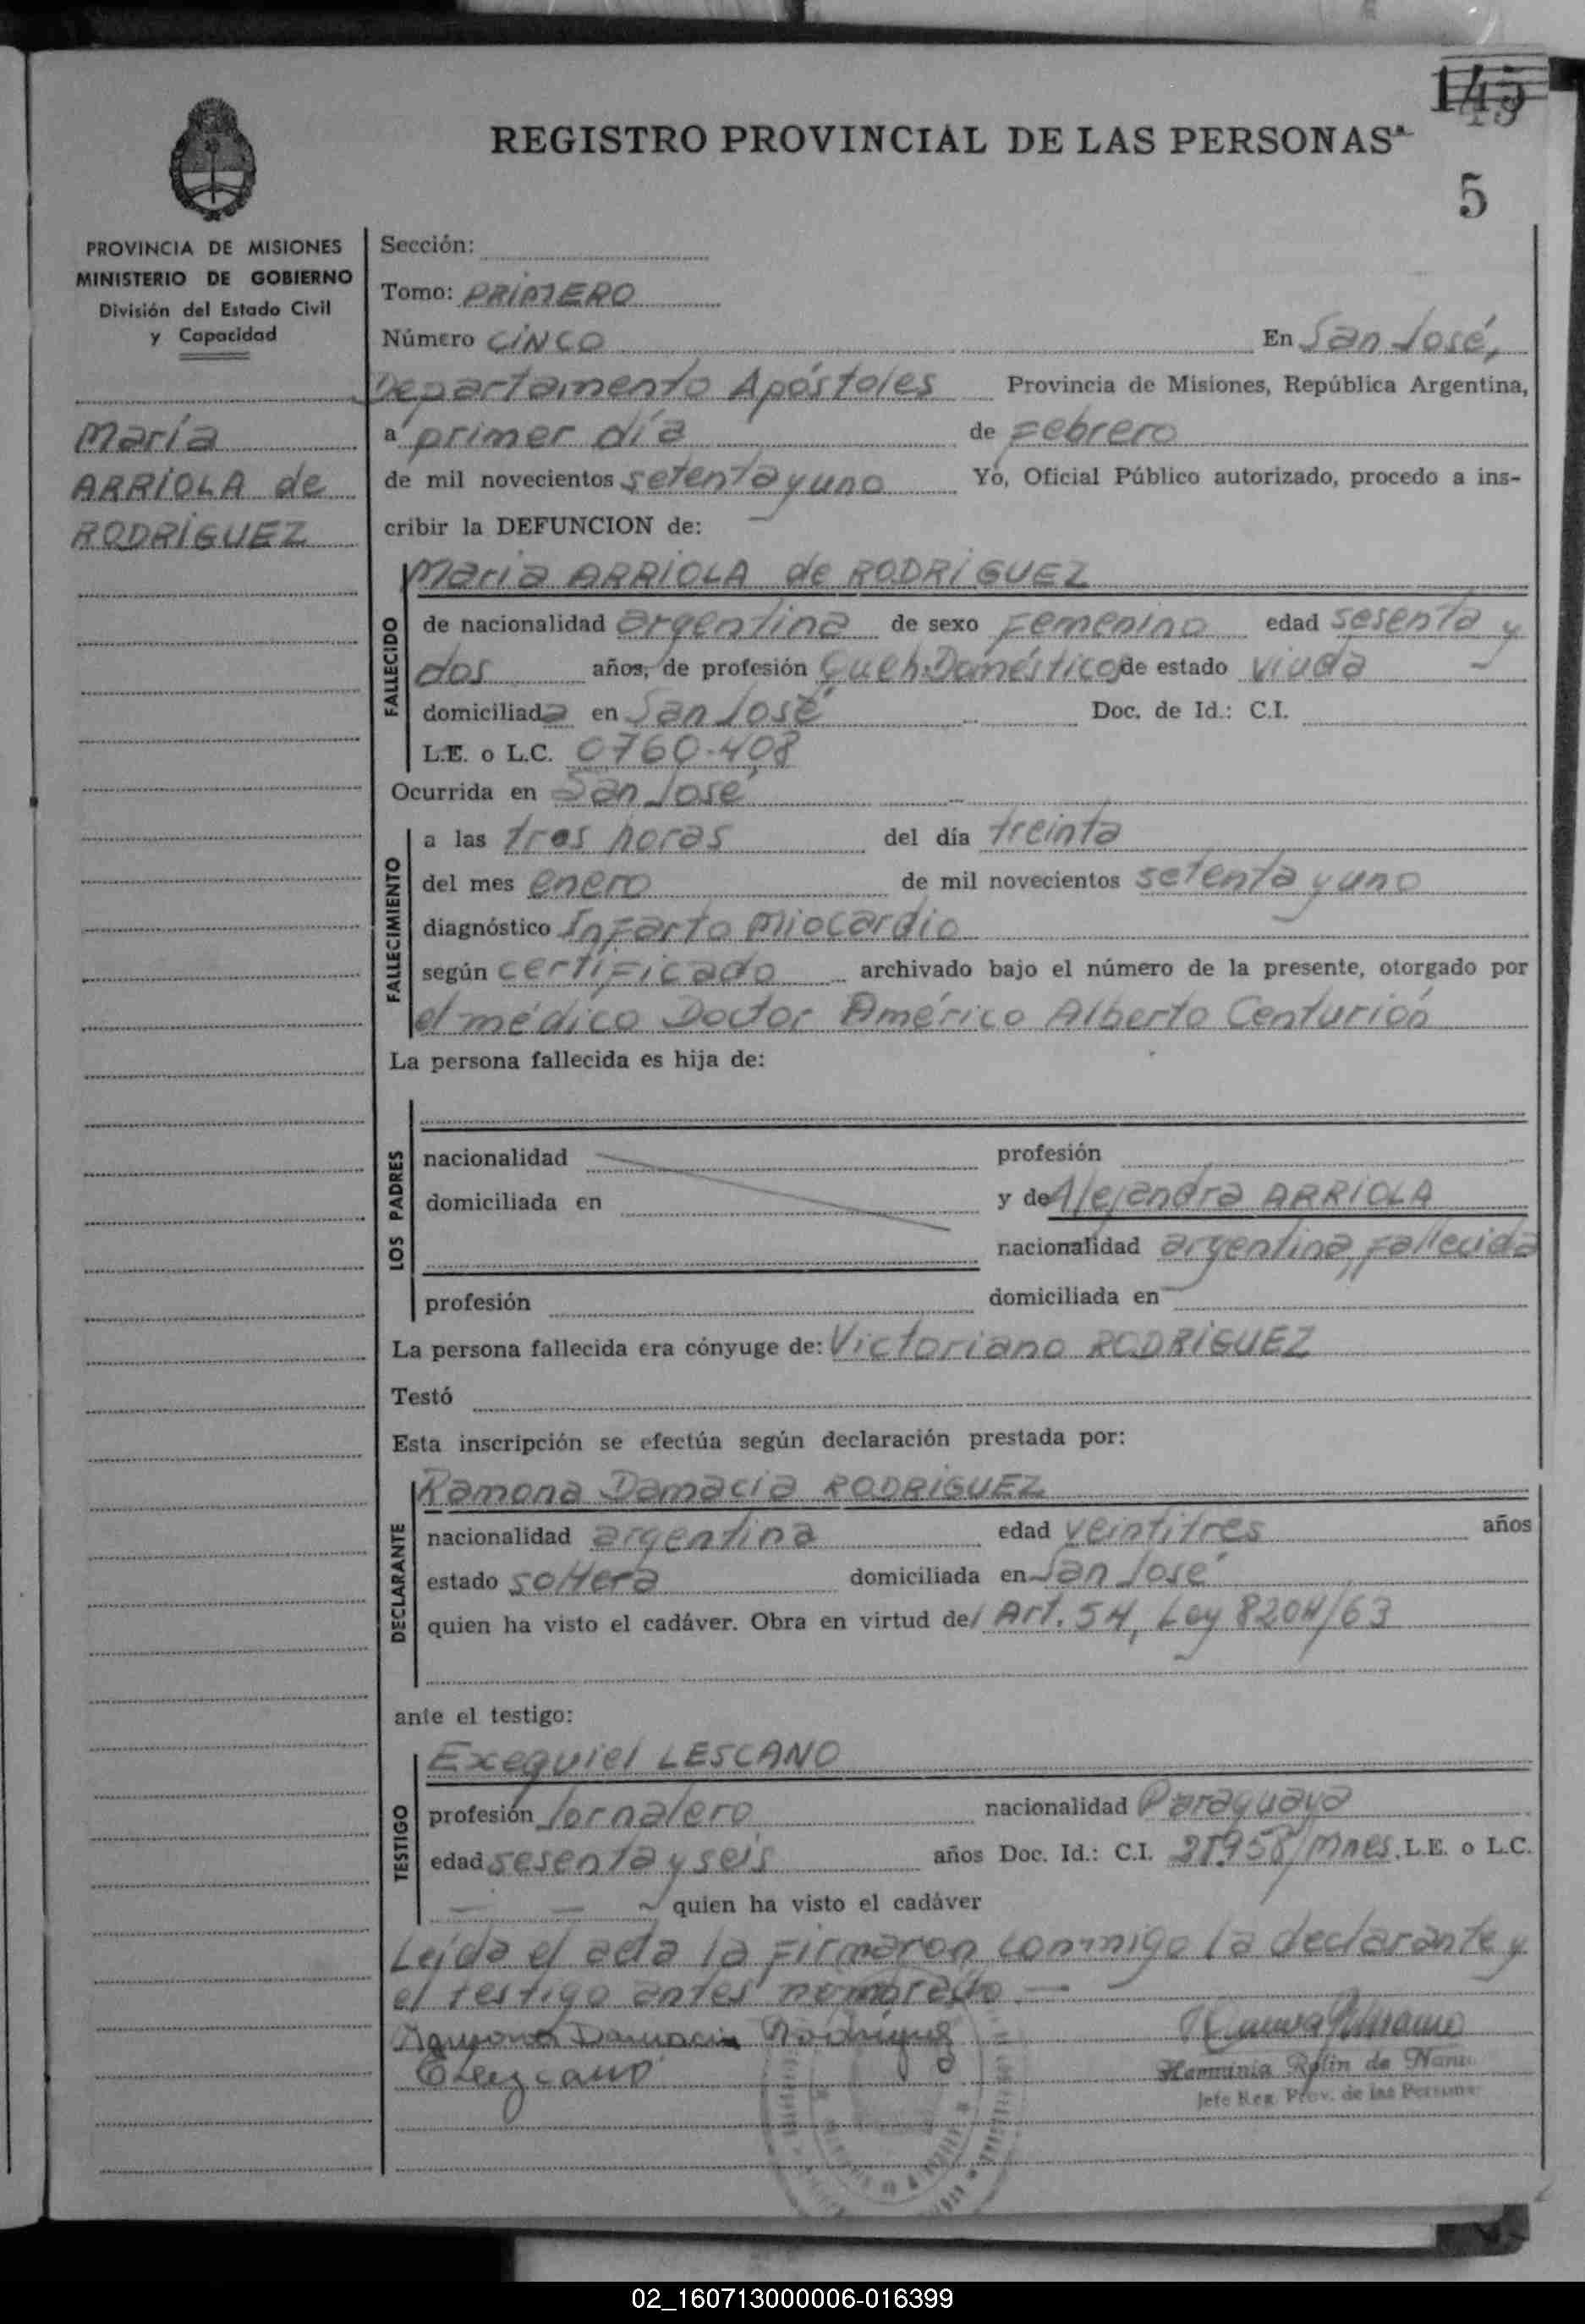 145
REGISTRO PROVINCIAL DE LAS PERSONAS
5
PROVINCIA DE MISIONES
MINISTERIO DE GOBIERNO
División del Estado Civil
y Capacidad
María
ARRIOLA de
RODRIGUEZ
Sección:
Tomo: PRIMERO
Número CINCO En San José,
Departamento Apóstoles Provincia de Misiones, República Argentina,
a primer día de Febrero
de mil novecientos setenta y uno Yo, Oficial Público autorizado, procedo a ins-
cribir la DEFUNCION de:
FALLECIDO
María ARRIOLA de RODRIGUEZ
de nacionalidad argentina de sexo Femenino edad sesenta y
dos años, de profesión Queh. Domésticos de estado viuda
domiciliada en San José Doc. de Id.: C.I.
L.E. o L.C. 0760.408
Ocurrida en San José
FALLECIMIENTO
a las tres horas del día treinta
del mes enero de mil novecientos setenta y uno
diagnóstico Infarto Miocardio
según certificado archivado bajo el número de la presente, otorgado por
el médico Doctor Américo Alberto Centurión
La persona fallecida es hija de:
LOS PADRES
nacionalidad profesión
domiciliada en y de Alejandra ARRIOLA
nacionalidad argentina, fallecida
profesión domiciliada en
La persona fallecida era cónyuge de: Victoriano RODRIGUEZ
Testó
Esta inscripción se efectúa según declaración prestada por:
DECLARANTE
Ramona Damacia RODRIGUEZ
nacionalidad argentina edad veintitres años
estado soltera domiciliada en San José
quien ha visto el cadáver. Obra en virtud del Art. 54, Ley 8204/63
ante el testigo:
TESTIGO
Exequiel LESCANO
profesión Jornalero nacionalidad Paraguaya
edad sesenta y seis años Doc. Id.: C.I. /Mnes. L.E. o L.C.
quien ha visto el cadáver
Leída el acta la firmaron conmigo la declarante y
el testigo antes nombrado.—
Ramona Damacia Rodriguez
E Lezcano
Herminia Rolin de
Jefe Reg. Prov. de las Personas
02_160713000006-016399